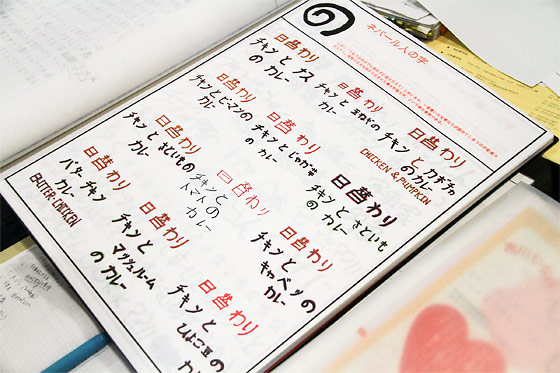 の
ネパール人の字
日替わり
チキンと ナス
の カレー
日替わり
チキンと 玉ねぎの
カレー
日替わり
チキンと カボチャ
のカレー
CHICKEN & PUMPKIN
日替わり
チキンとピーマンの
カレー
日替わり
チキンと じゃが芋
の カレー
日替わり
チキンと さといも
の カレー
日替わり
チキンと さといもの
カレー
日替わり
チキンとの
トマト カレー
日替わり
チキンと
キャベツの
カレー
日替わり
バター チキン
カレー
BUTTER-CHICKEN
日替わり
チキンと
マッシュルーム
の カレー
日替わり
チキンと
ひよこ豆の
カレー